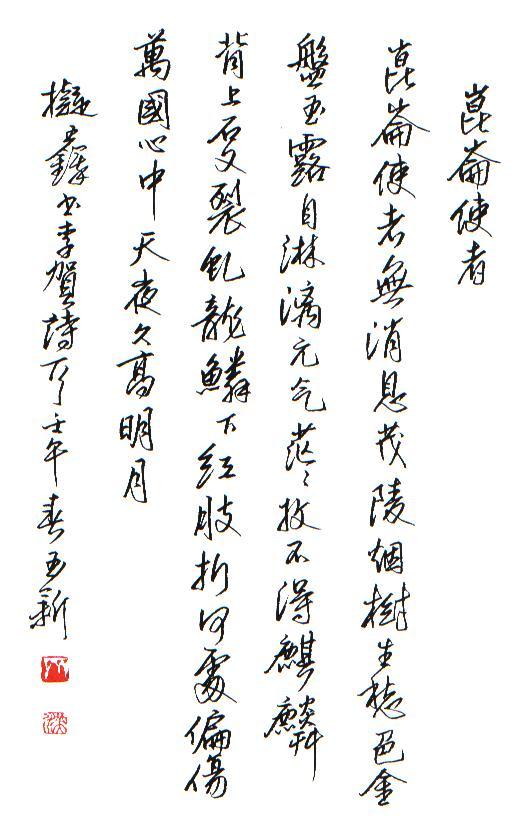 崑崙使者
崑崙使者無消息茂陵烟樹生愁色金
盤玉露自淋漓元气茫々收不得麒麟
背上石文裂虬龍鱗下红肢折何處偏傷
萬國心中天夜久高明月
擬王鐸书李賀詩壬午春